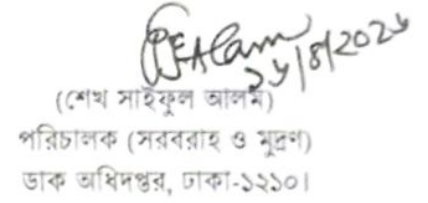 (শেখ সাইফুল আলম)
পরিচালক (সরবরাহ ও মুদ্রণ)
ডাক অধিদপ্তর, ঢাকা-১২১০।